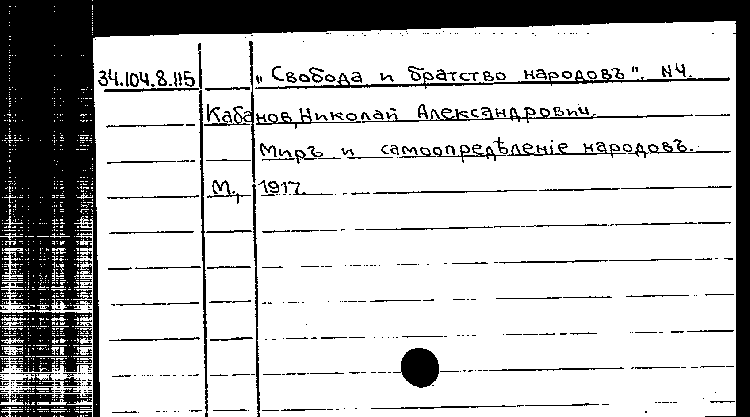 34.104.8.115 „Свобода и братство народовъ". N4.
Кабанов, Николай Александрович.
Миръ и самоопредѣленіе народовъ.
М., 1917.